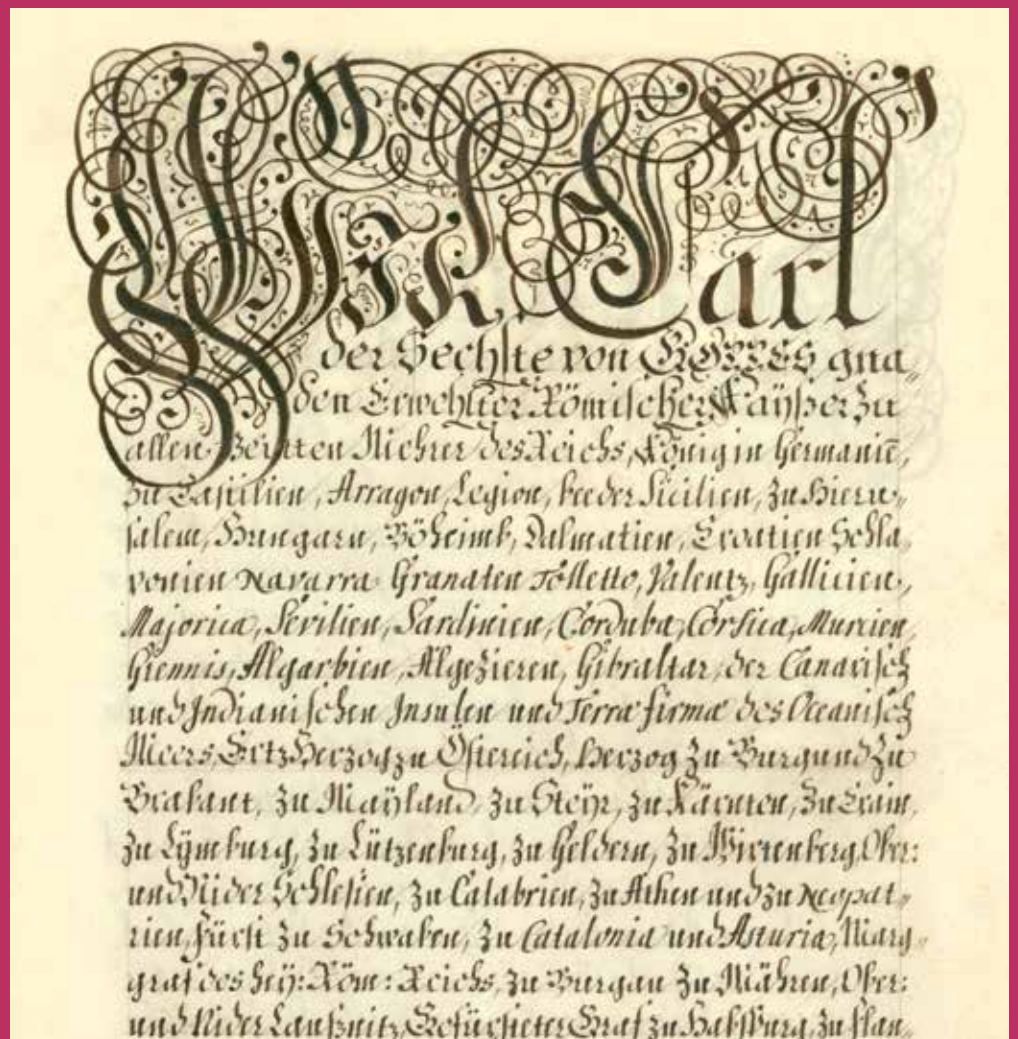 Wir Carl
der Sechste von GOTTES gna„
den Erwehlter Römischer Kaÿßer zu
allen Zeitten Mehrer des Reichs, König in Germaniē,
zu Castilien, Arragon, Legion, beeder Sicilien, zu Hieru„
salem, Hungarn, Böheimb, Dalmatien, Croatien Schla„
vonien Navarra Granaten Tolletto, Valentz, Gallicien,
Majorica, Sevilien, Sardinien, Corduba, Corsica, Murcien,
Giennis, Algarbien, Algezieren, Gibraltar, der Canarisch
und Indianischen Insulen und Terra firma des Oceanisch
Meers, Ertz Herzog zu Österreich, Herzog zu Burgund zu
Brabant, zu Maÿland, zu Steÿr, zu Kärnten, zu Crain,
zu Lÿmburg, zu Lützenburg, zu Geldern, zu Wirtenberg, Ober:
und Nider Schlesien, zu Calabrien, zu Athen und zu Neopat„
rien, Fürst zu Schwaben, zu Catalonia und Asturia, Marg„
graf des heÿ: Röm: Reichs, zu Burgau zu Mähren, Ober:
und Nider Laußnitz, Gefürsteter Graf zu Habspurg, zu Flan„